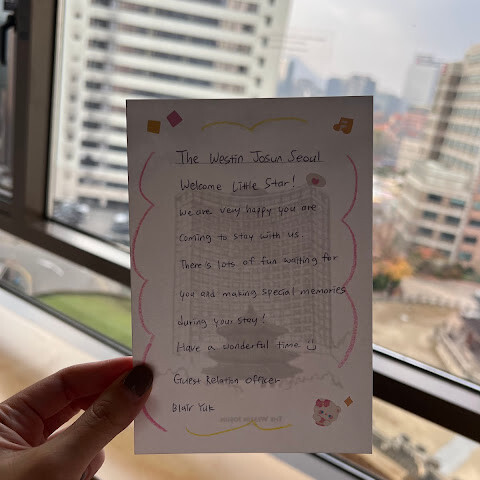 The Westin Josun Seoul
Welcome Little Star!
We are very happy you are
coming to stay with us.
There is lots of fun waiting for
you and making special memories
during your stay!
Have a wonderful time
Guest Relation Officer
Blair Yuk